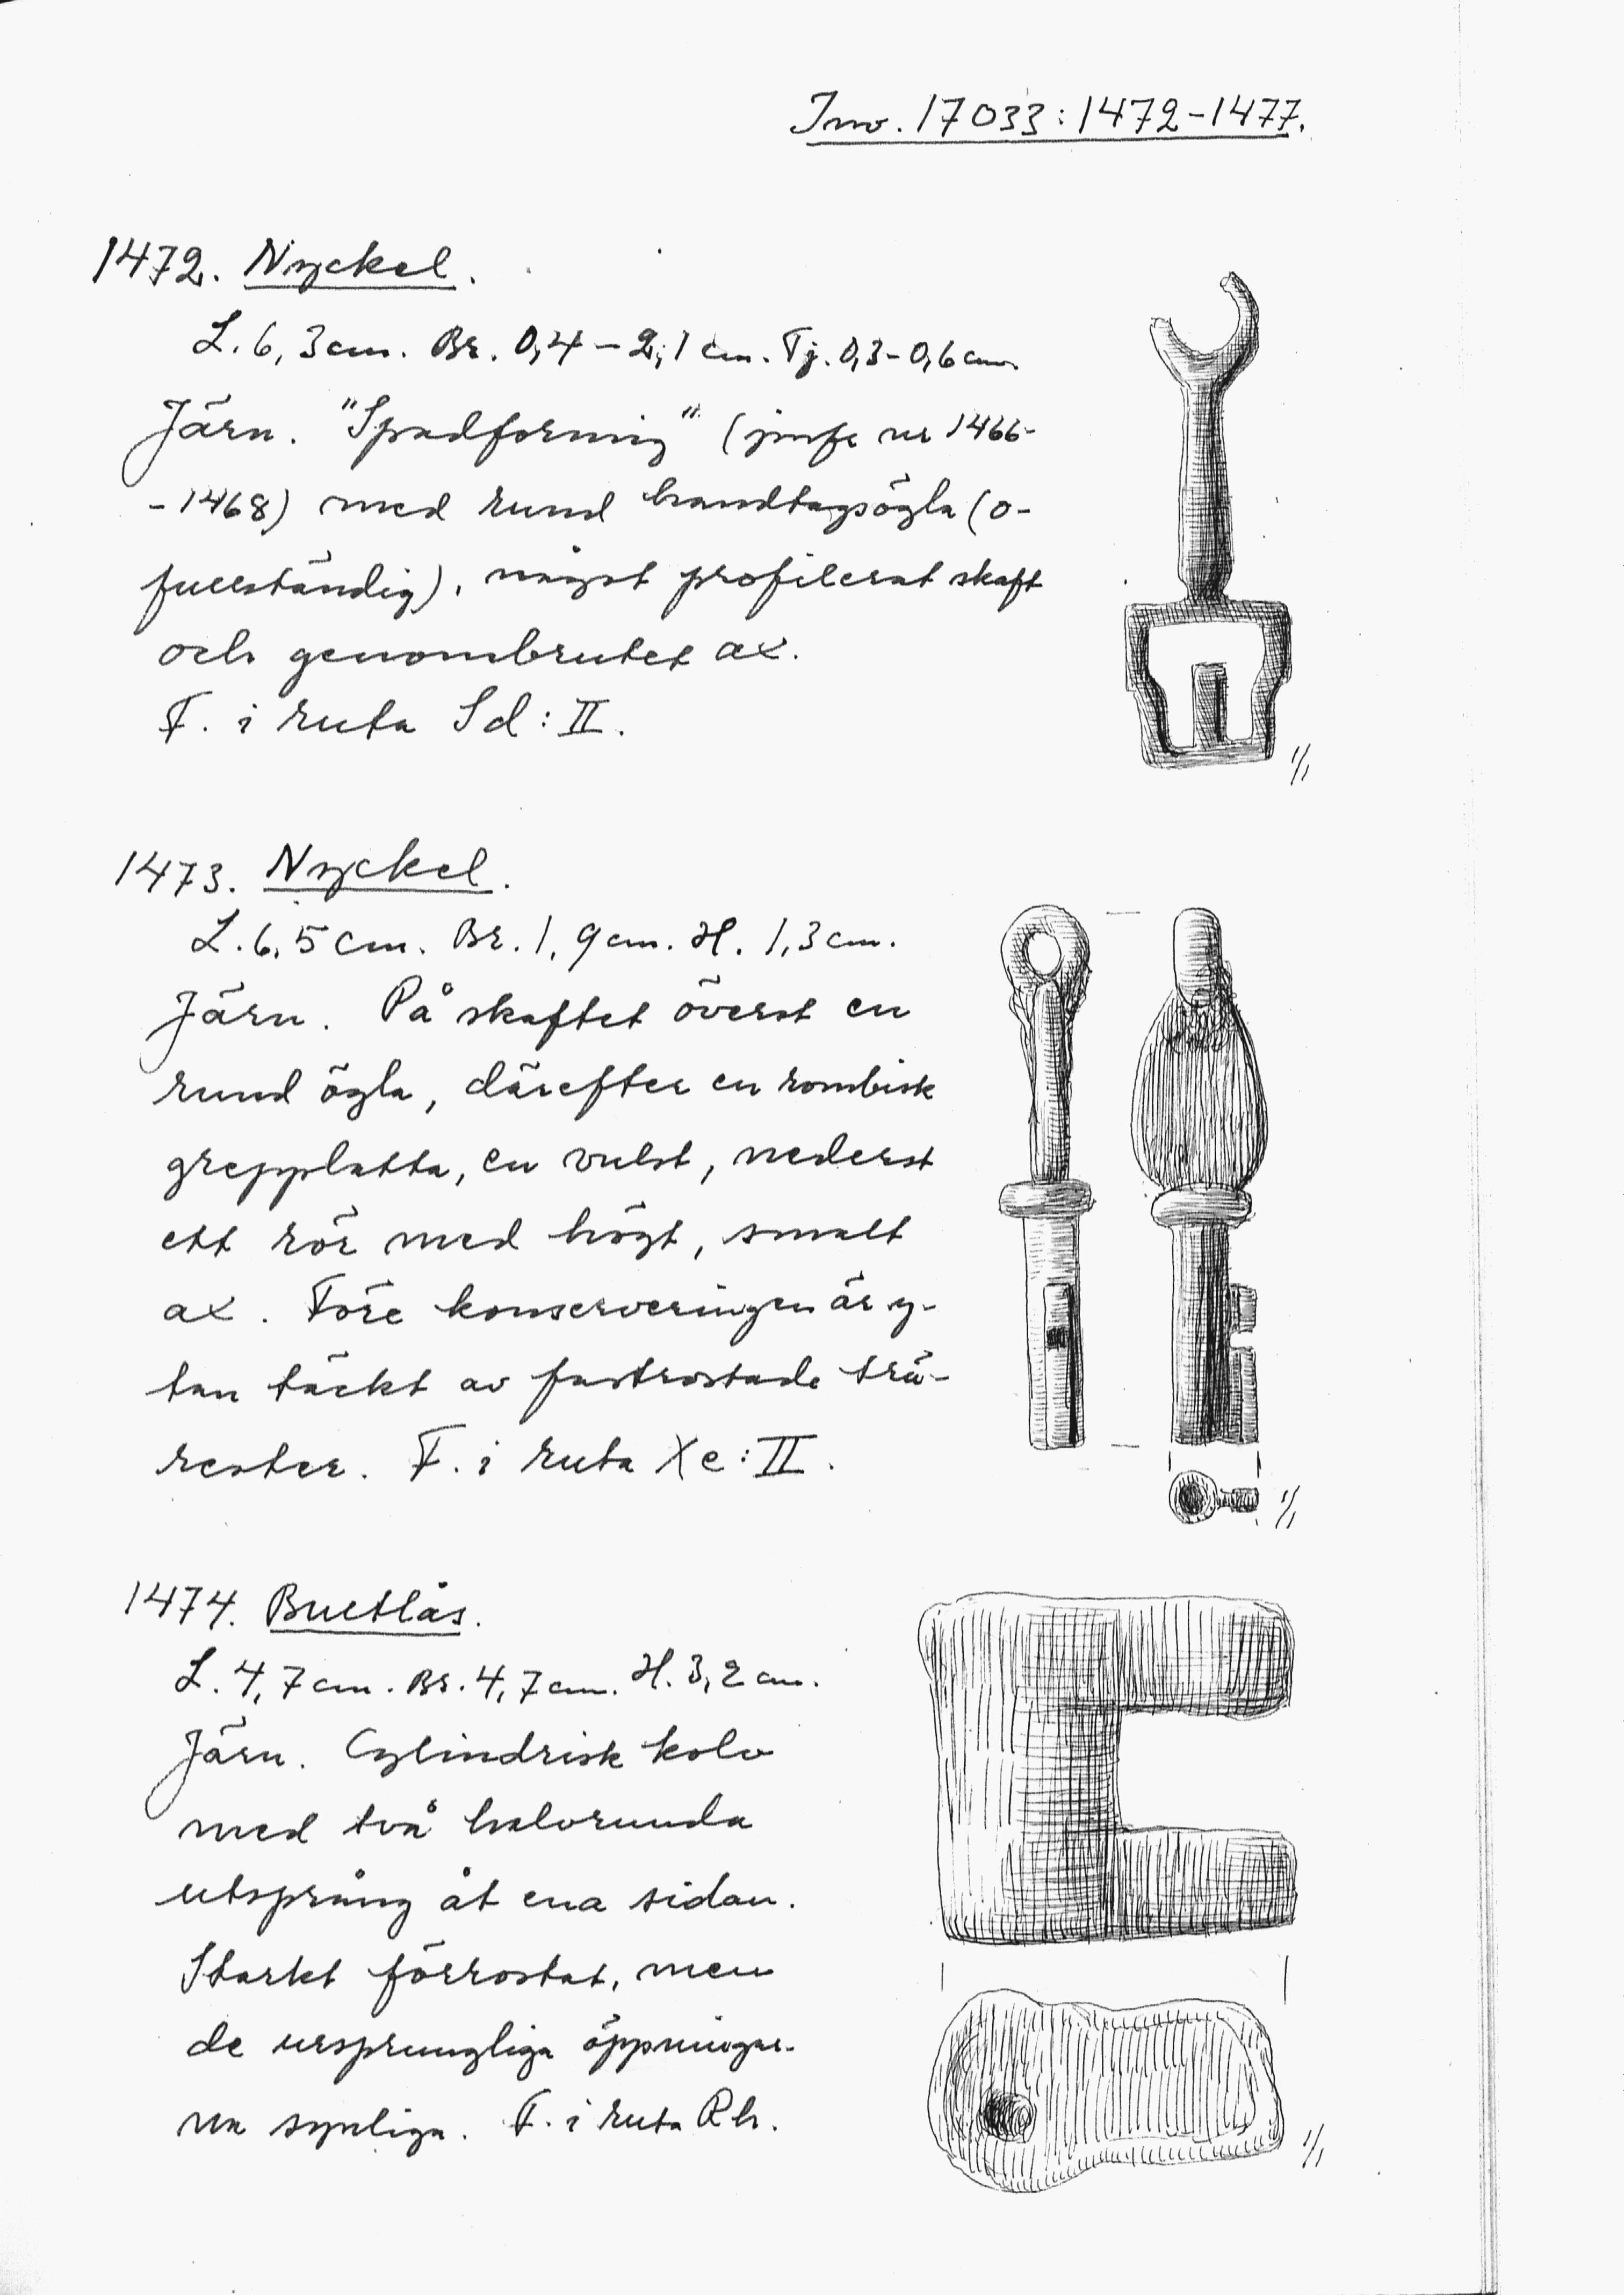 Inv. 17033:1472-1477.
1472. Nyckel.
L. 6,3 cm. Br. 0,4 - 2,1 cm. Tj. 0,3 - 0,6 cm.
Järn. "Spadformig" (jmfr nr 1466-
-1468) med rund handtagsögla (o-
fullständig), något profilerat skaft
och genombrutet ax.
F. i ruta Sd:II.
1/1
1473. Nyckel.
L. 6,5 cm. Br. 1,9 cm. H. 1,3 cm.
Järn. På skaftet överst en
rund ögla, därefter en rombisk
grepplatta, en vulst, nederst
ett rör med högt, smalt
ax. Före konserveringen är y-
tan täckt av fastrostade trä-
rester. F. i ruta Xe:II.
1/1
1474. Bultlås.
L. 4,7 cm. Br. 4,7 cm. H. 3,2 cm.
Järn. Cylindrisk kolv
med två halvrunda
utsprång åt ena sidan.
Starkt förrostat, men
de ursprungliga öppningar-
na synliga. F. i ruta Rh.
1/1